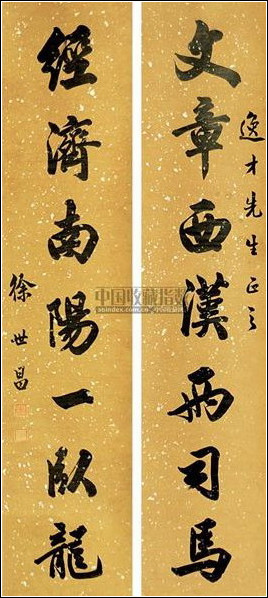 逸才先生正之
文章西漢兩司馬
經濟南陽一臥龍
徐世昌
中国收藏指数